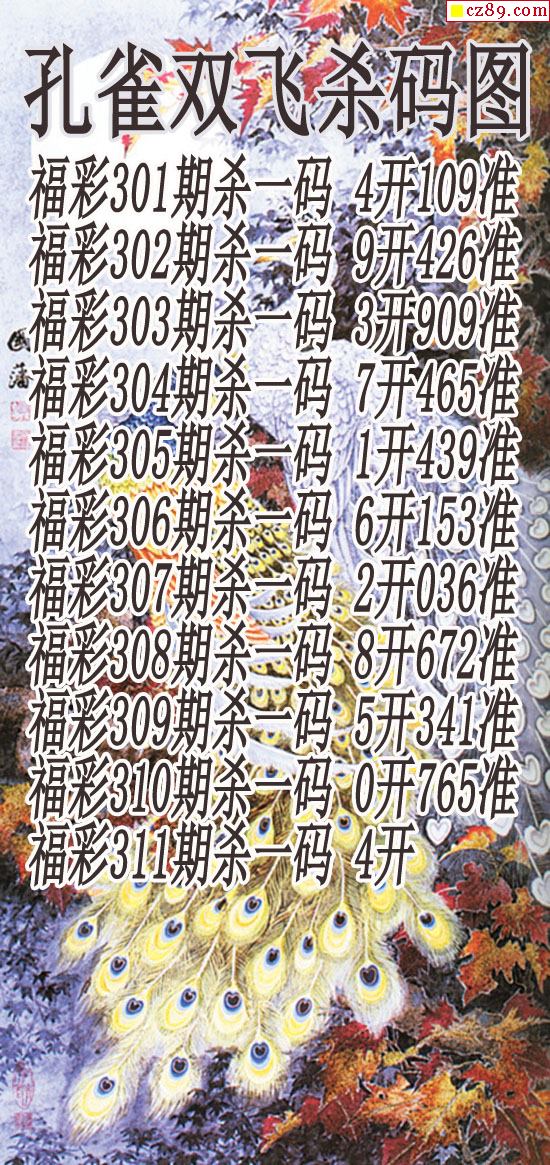 cz89.com
孔雀双飞杀码图
福彩301期杀一码 4开109准
福彩302期杀一码 9开426准
福彩303期杀一码 3开909准
福彩304期杀一码 7开465准
福彩305期杀一码 1开439准
福彩306期杀一码 6开153准
福彩307期杀一码 2开036准
福彩308期杀一码 8开672准
福彩309期杀一码 5开341准
福彩310期杀一码 0开765准
福彩311期杀一码 4开